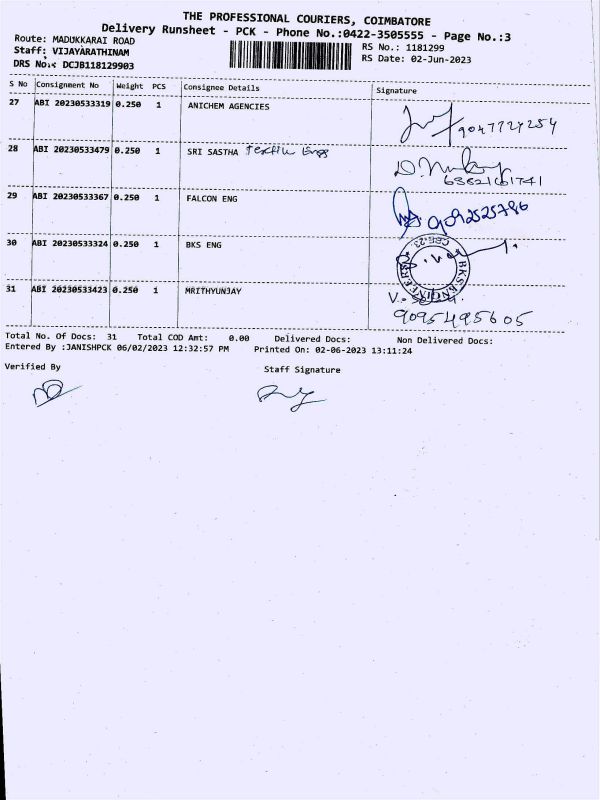 THE PROFESSIONAL COURIERS, COIMBATORE
Delivery Runsheet - PCK - Phone No.:0422-3505555 - Page No.:3
Route: MADUKKARAI ROAD
RS No.: 1181299
Staff: VIJAYARATHINAM
RS Date: 02-Jun-2023
DRS No.: DCJB118129903
S No Consignment No Weight PCS Consignee Details Signature
27 ABI 20230533319 0.250 1 ANICHEM AGENCIES
9047727254
28 ABI 20230533479 0.250 1 SRI SASTHA Textile Engg
6382161741
29 ABI 20230533367 0.250 1 FALCON ENG
9092525786
30 ABI 20230533324 0.250 1 BKS ENG
BKS ENGINEERS
CBE-23
31 ABI 20230533423 0.250 1 MRITHYUNJAY
9095495605
Total No. Of Docs: 31 Total COD Amt: 0.00 Delivered Docs: Non Delivered Docs:
Entered By :JANISHPCK 06/02/2023 12:32:57 PM Printed On: 02-06-2023 13:11:24
Verified By Staff Signature